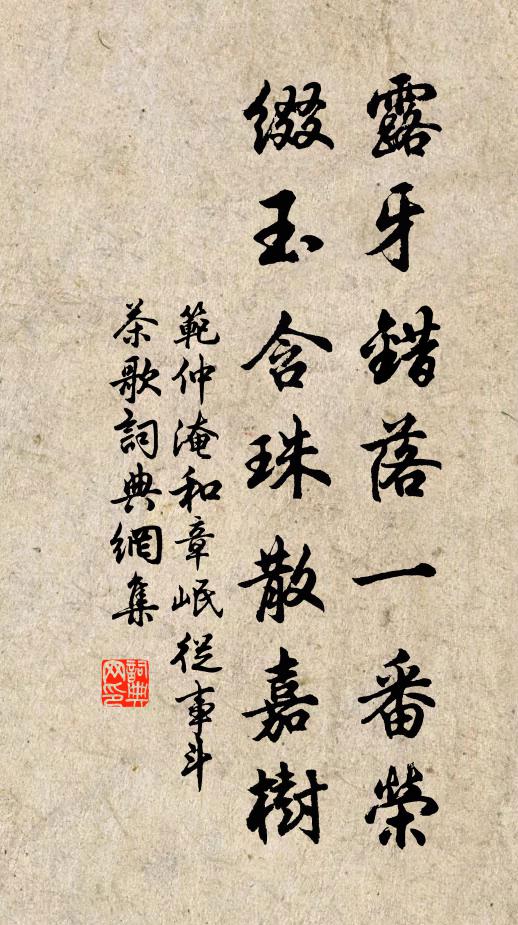 露牙錯落一番榮
綴玉含珠散嘉樹
範仲淹和章岷從事斗
茶歌詞典網集
詞典网印